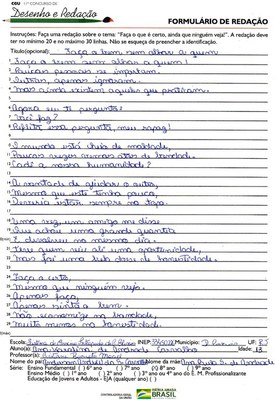 CGU 11º CONCURSO DE
Desenho e Redação
FORMULÁRIO DE REDAÇÃO
Instruções: Faça uma redação sobre o tema: "Faça o que é certo, ainda que ninguém veja!". A redação deve
ter no mínimo 20 e no máximo 30 linhas. Não se esqueça de preencher a identificação.
Título(opcional): Faça o bem sem olhar a quem
1 Faça o bem sem olhar a quem!
2 Poucas pessoas se importam.
3 Outras, apenas ignoram.
4 Mas ainda existem aquelas que praticam.
5
6 Agora eu te pergunto:
7 Você faz?
8 Reflita essa pergunta, meu rapaz!
9
10 O mundo está cheio de maldade,
11 Poucas vezes vemos atos de bondade.
12 Cadê a nossa humanidade?
13
14 A vontade de ajudar o outro,
15 Mesmo que este tenha pouco,
16 Deveria estar sempre no topo.
17
18 Uma vez, um amigo me disse
19 Que achou uma grande quantia
20 E devolveu no mesmo dia.
21 Teve quem viu até uma oportunidade,
22 Mas foi uma bela dose de honestidade.
23
24 Faça o certo,
25 Mesmo que ninguém veja.
26 Apenas faça,
27
28 Não economize na bondade,
29 Muito menos na honestidade.
Escola: INEP: Município: UF: RJ
Aluno(a): Idade: 13
Professor(a):
Nome do pai: Nome da mãe:
Série: Ensino Fundamental ( ) 6º ano ( ) 7º ano ( ) 8º ano ( ) 9º ano
Ensino Médio ( ) 1º ano ( ) 2º ano ( ) 3º ano ou 4º ano do E. M. Profissionalizante
Educação de Jovens e Adultos - EJA (qualquer ano) ( )
PÁTRIA AMADA
BRASIL